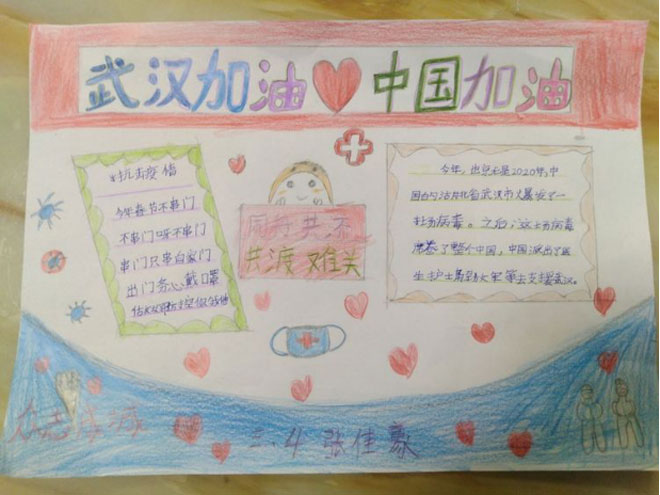 武汉加油 中国加油
抗击疫情
今年春节不串门
不串门呀不串门
串门只串自家门
出门务必戴口罩
同舟共济
共渡难关
今年,也就是2020年,中
国的湖北省武汉市大暴发了一
场病毒。之后,这场病毒
席卷了整个中国,中国派出了医
生护士
去支援武汉。
众志成城
三.4 张佳豪